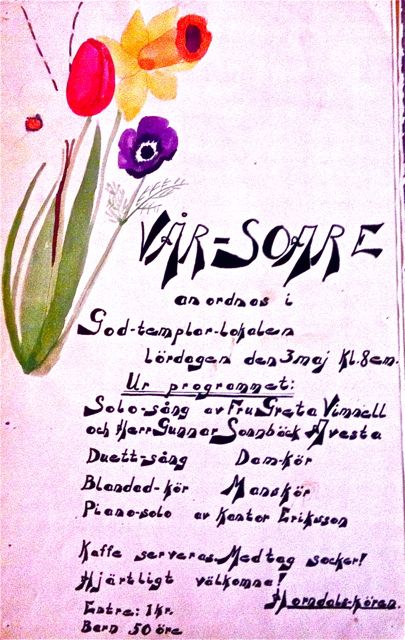 VÅR-SOARE
anordnas i
God-templar-lokalen
lördagen den 3 maj Kl. 8 em.
Ur programmet:
Solo-sång av Fru Greta Vimnell
och Herr Gunnar Sonnbäck Avesta
Duett-sång Dam-kör
Blandad-kör Manskör
Piano-solo av Kantor Eriksson
Kaffe serveras. Medtag socker!
Hjärtligt välkomna!
Horndals-kören.
Entre: 1 kr.
Barn 50 öre